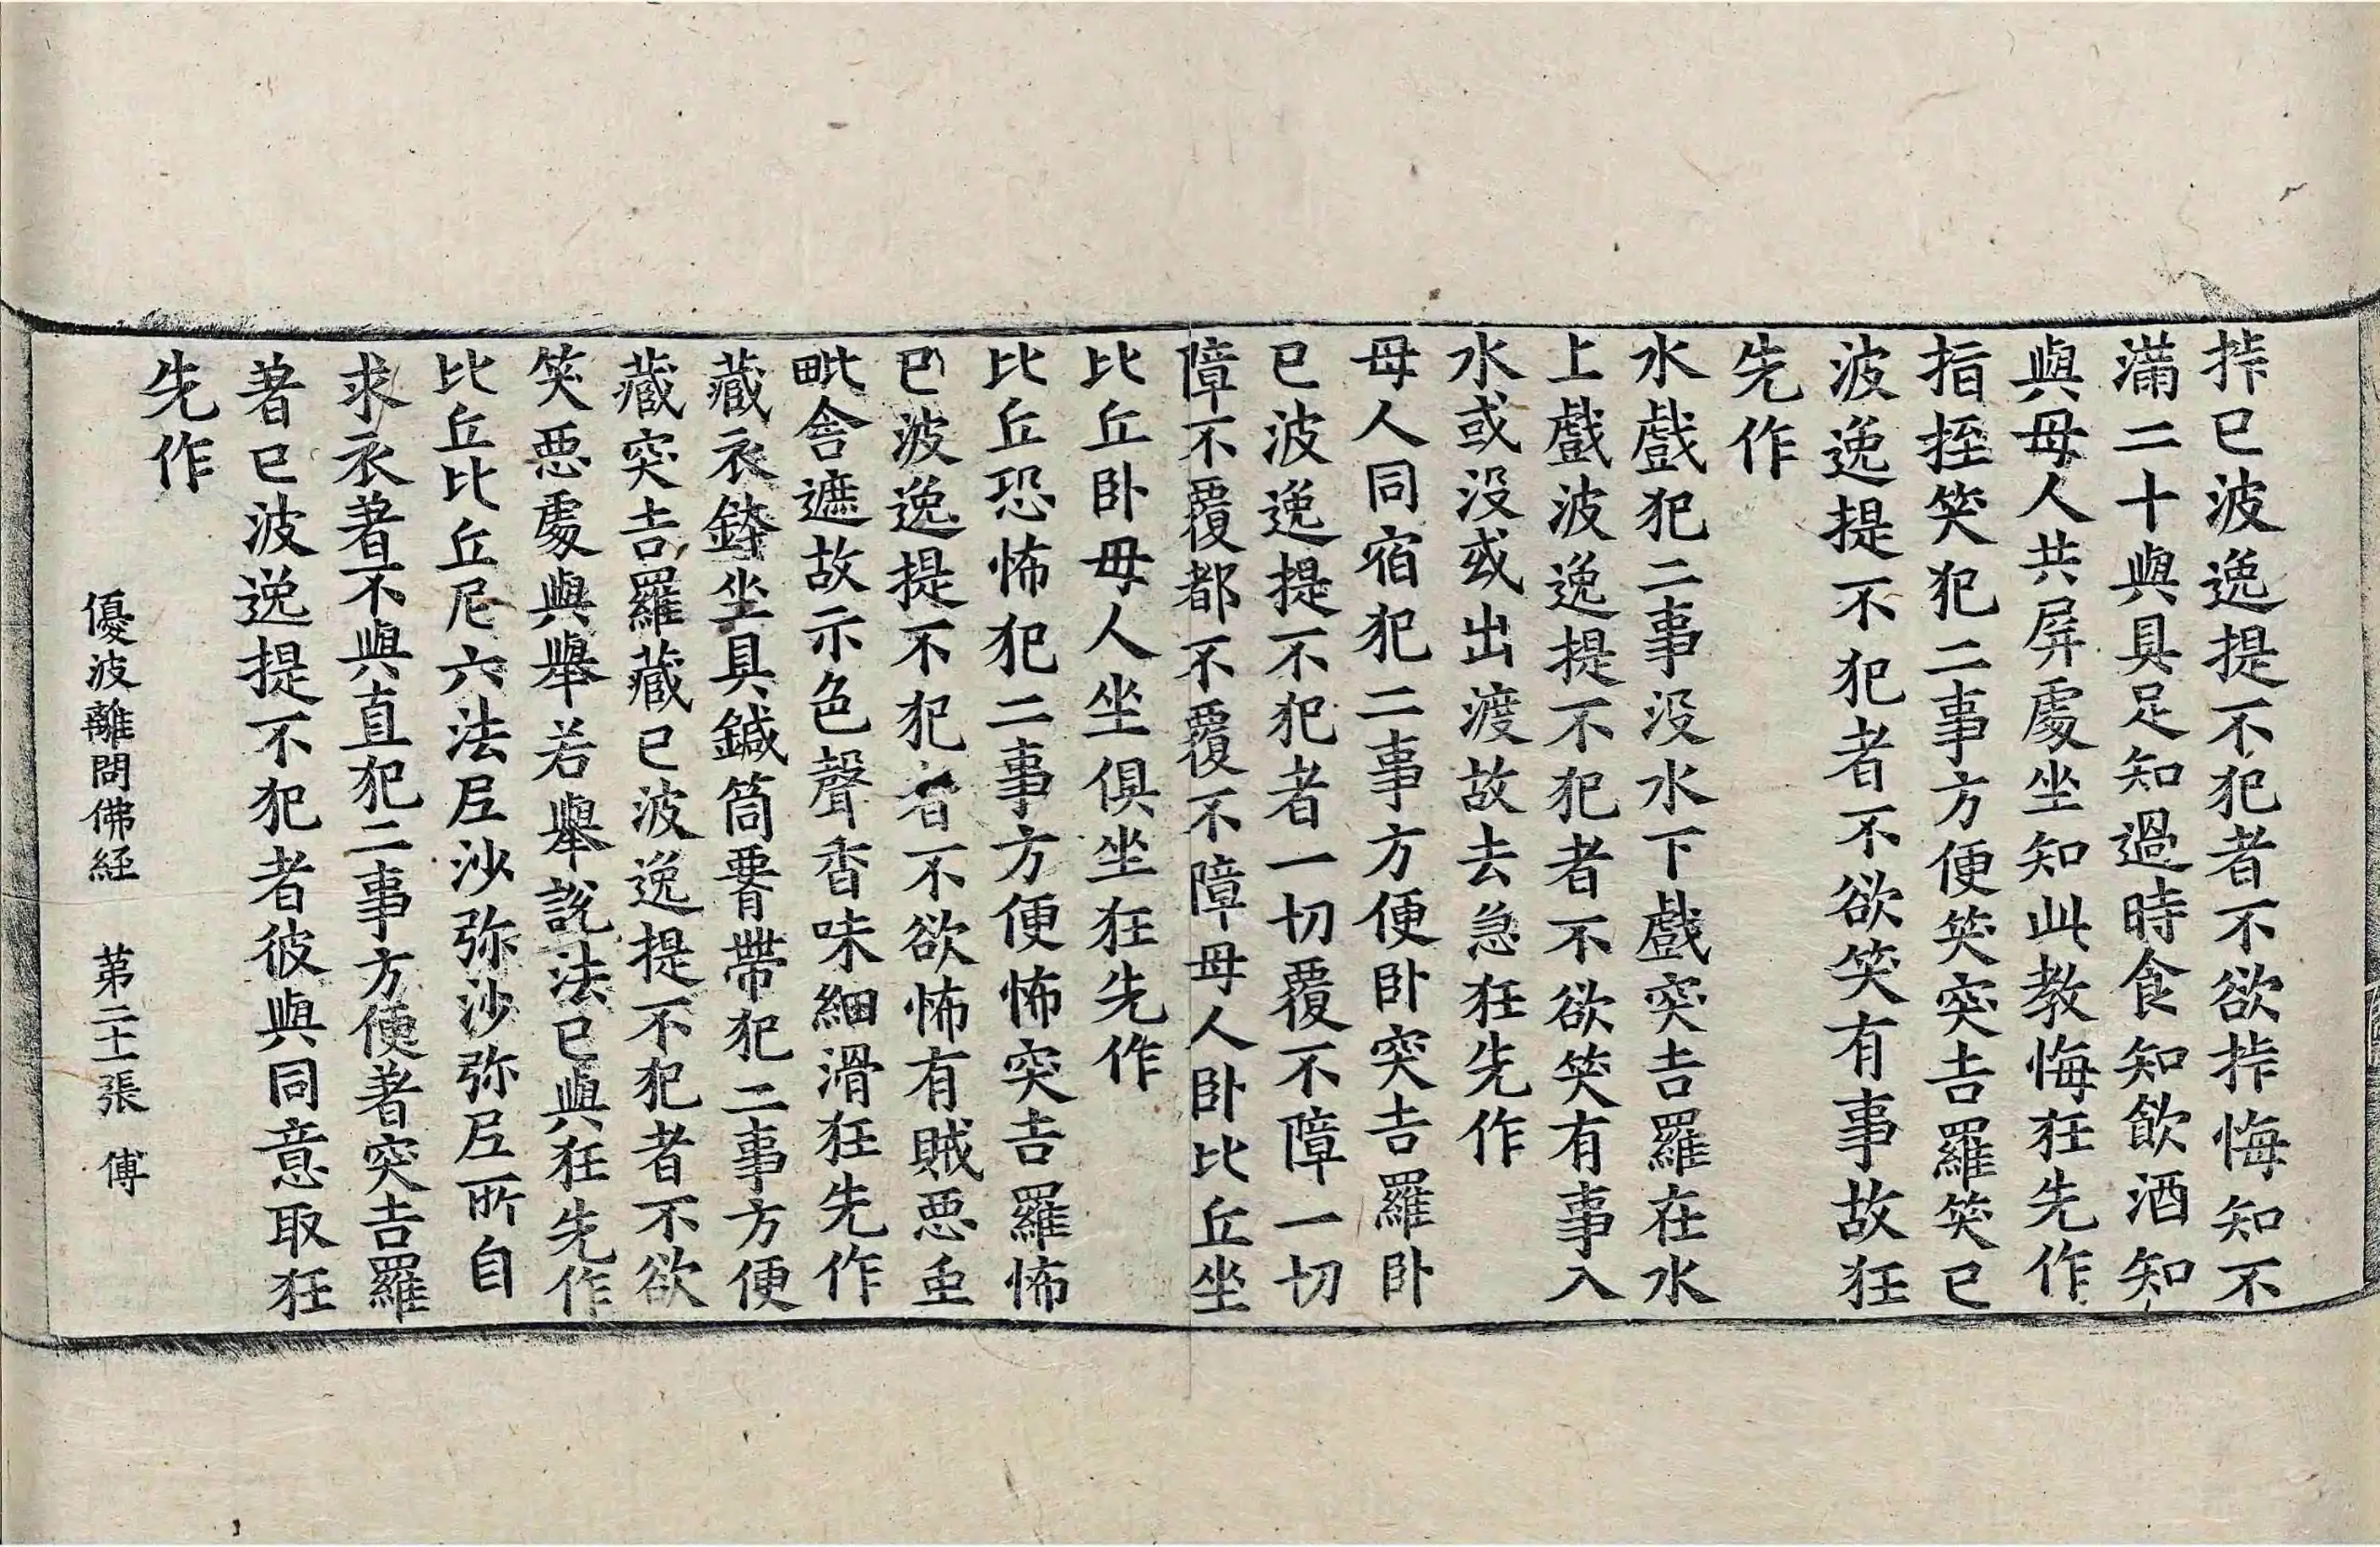 挊已波逸提不犯者不欲挊悔知不
滿二十與具足知過時食知飲酒知
與母人共屏處坐知此教悔狂先作
指挃笑犯二事方便笑突吉羅笑已
波逸提不犯者不欲笑有事故狂
先作
水戲犯二事没水下戲突吉羅在水
上戲波逸提不犯者不欲笑有事入
水或没或出渡故去急狂先作
母人同宿犯二事方便卧突吉羅卧
已波逸提不犯者一切覆不障一切
障不覆都不覆不障母人卧比丘坐
比丘卧母人坐俱坐狂先作
比丘恐怖犯二事方便怖突吉羅怖
已波逸提不犯者不欲怖有賊悪虫
毗舍遮故示色聲香味細滑狂先作
藏衣鉢坐具鍼筒𦝫帶犯二事方便
藏突吉羅藏已波逸提不犯者不欲
笑悪處與舉若舉說法已與狂先作
比丘比丘尼六法尼沙弥沙弥尼所自
求衣著不與直犯二事方便著突吉羅
著已波逸提不犯者彼與同意取狂
先作
優波離問佛經 苐二十一張 傅